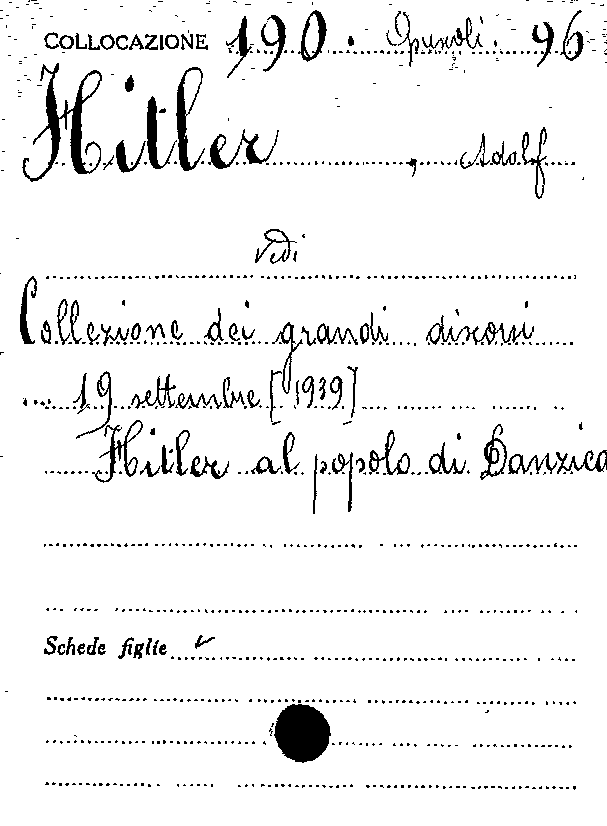 COLLOCAZIONE 190. Opuscoli. 96
Hitler, Adolf
Vedi
Collezione dei grandi discorsi
... 19 settembre [1939]
Hitler al popolo di Danzica
Schede figlie